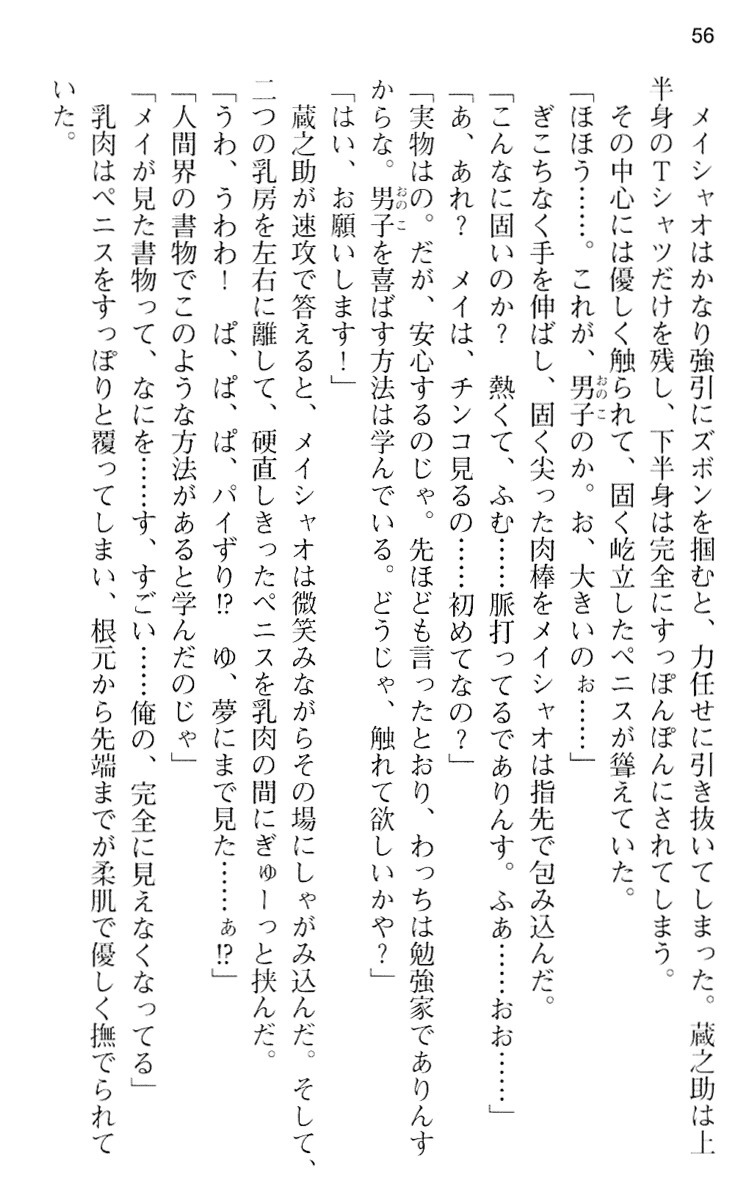 56
メイシャオはかなり強引にズボンを掴むと、力任せに引き抜いてしまった。蔵之助は上
半身のTシャツだけを残し、下半身は完全にすっぽんぽんにされてしまう。
その中心には優しく触られて、固く屹立したペニスが聳えていた。
「ほほう……。これが、男子おのこのか。お、大きいのぉ……」
ぎこちなく手を伸ばし、固く尖った肉棒をメイシャオは指先で包み込んだ。
「こんなに固いのか？　熱くて、ふむ……脈打ってるでありんす。ふあ……おお……」
「あ、あれ？　メイは、チンコ見るの……初めてなの？」
「実物はの。だが、安心するのじゃ。先ほども言ったとおり、わっちは勉強家でありんす
からな。男子おのこを喜ばす方法は学んでいる。どうじゃ、触れて欲しいかや？」
「はい、お願いします！」
蔵之助が速攻で答えると、メイシャオは微笑みながらその場にしゃがみ込んだ。そして、
二つの乳房を左右に離して、硬直しきったペニスを乳肉の間にぎゅーっと挟んだ。
「うわ、うわわ！　ぱ、ぱ、ぱ、パイずり!?　ゆ、夢にまで見た……ぁ!?」
「人間界の書物でこのような方法があると学んだのじゃ」
「メイが見た書物って、なにを……す、すごい……俺の、完全に見えなくなってる」
乳肉はペニスをすっぽりと覆ってしまい、根元から先端までが柔肌で優しく撫でられて
いた。